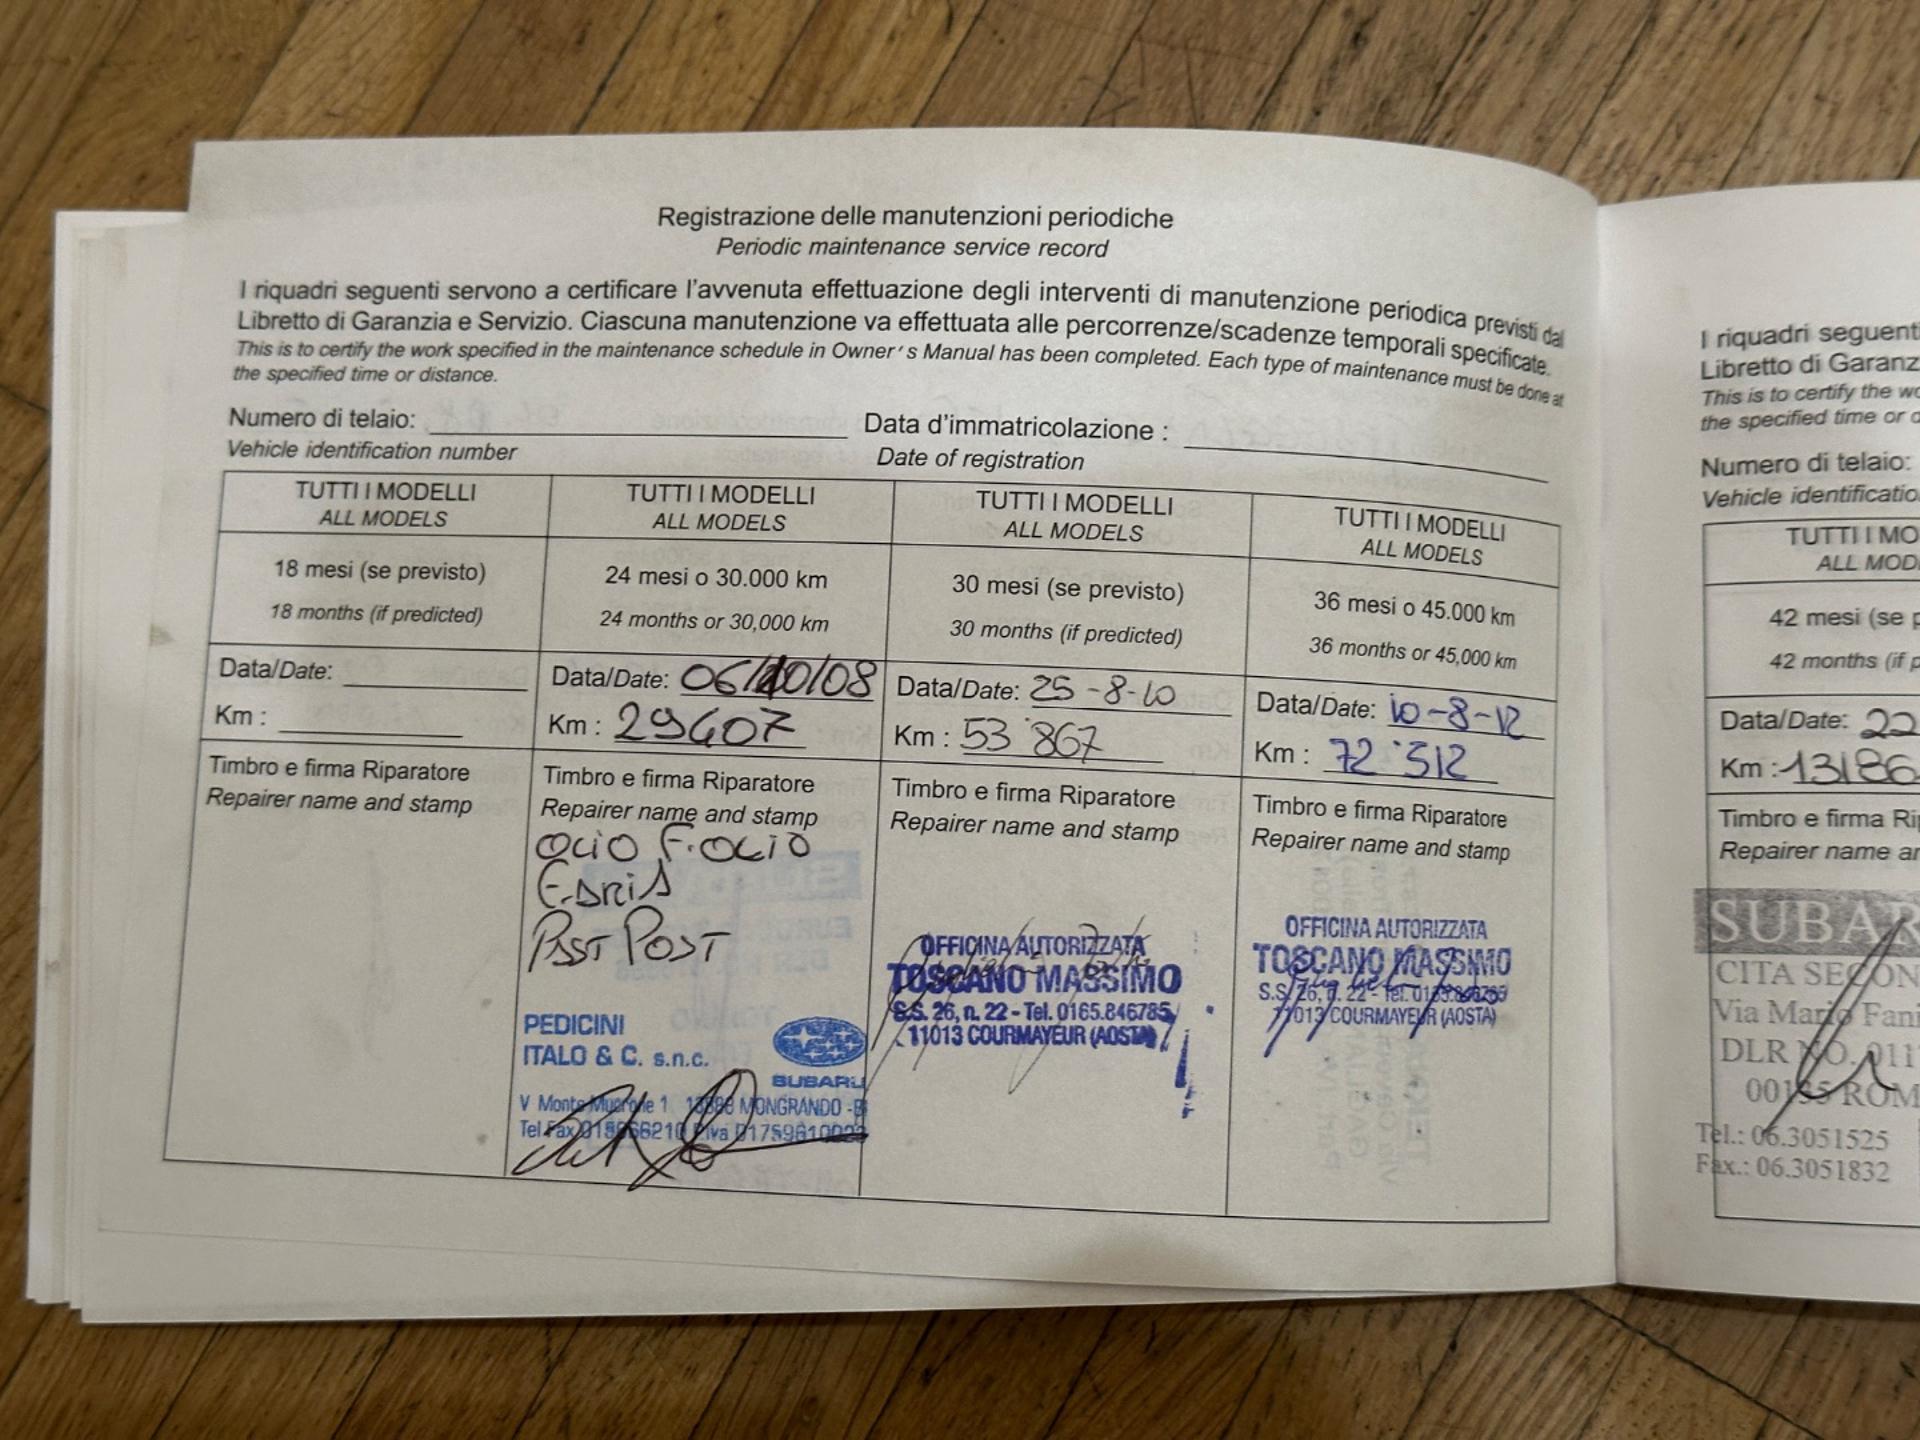 Registrazione delle manutenzioni periodiche
Periodic maintenance service record
I riquadri seguenti servono a certificare l'avvenuta effettuazione degli interventi di manutenzione periodica previsti dal
Libretto di Garanzia e Servizio. Ciascuna manutenzione va effettuata alle percorrenze/scadenze temporali specificate.
This is to certify the work specified in the maintenance schedule in Owner's Manual has been completed. Each type of maintenance must be done at
the specified time or distance.
Numero di telaio: Data d'immatricolazione :
Vehicle identification number Date of registration
TUTTI I MODELLI
ALL MODELS
18 mesi (se previsto)
18 months (if predicted)
Data/Date:
Km :
Timbro e firma Riparatore
Repairer name and stamp
TUTTI I MODELLI
ALL MODELS
24 mesi o 30.000 km
24 months or 30,000 km
Data/Date: 06/10/08
Km : 29607
Timbro e firma Riparatore
Repairer name and stamp
OLIO F.OLIO
F.ARIA
POST
PEDICINI
ITALO & C. s.n.c.
SUBARU
V Monte Mucrone 1 13888 MONGRANDO -BI
TUTTI I MODELLI
ALL MODELS
30 mesi (se previsto)
30 months (if predicted)
Data/Date: 25-8-10
Km : 53'867
Timbro e firma Riparatore
Repairer name and stamp
OFFICINA AUTORIZZATA
TOSCANO MASSIMO
S.S. 26, n. 22 - Tel. 0165.846785
11013 COURMAYEUR (AOSTA)
TUTTI I MODELLI
ALL MODELS
36 mesi o 45.000 km
36 months or 45,000 km
Data/Date: 10-8-12
Km : 72'512
Timbro e firma Riparatore
Repairer name and stamp
OFFICINA AUTORIZZATA
TOSCANO MASSIMO
S.S. 26, n. 22 - Tel. 0165.846785
11013 COURMAYEUR (AOSTA)
I riquadri seguenti
Libretto di Garanz
This is to certify the wo
the specified time or d
Numero di telaio:
Vehicle identificatio
TUTTI I MO
ALL MOD
42 mesi (se p
42 months (if p
Data/Date: 22
Km : 13186
Timbro e firma Ri
Repairer name an
SUBAR
CITA SECON
Via Mario Fani
DLR NO. 011
00135 ROM
Tel.: 06.3051525
Fax.: 06.3051832